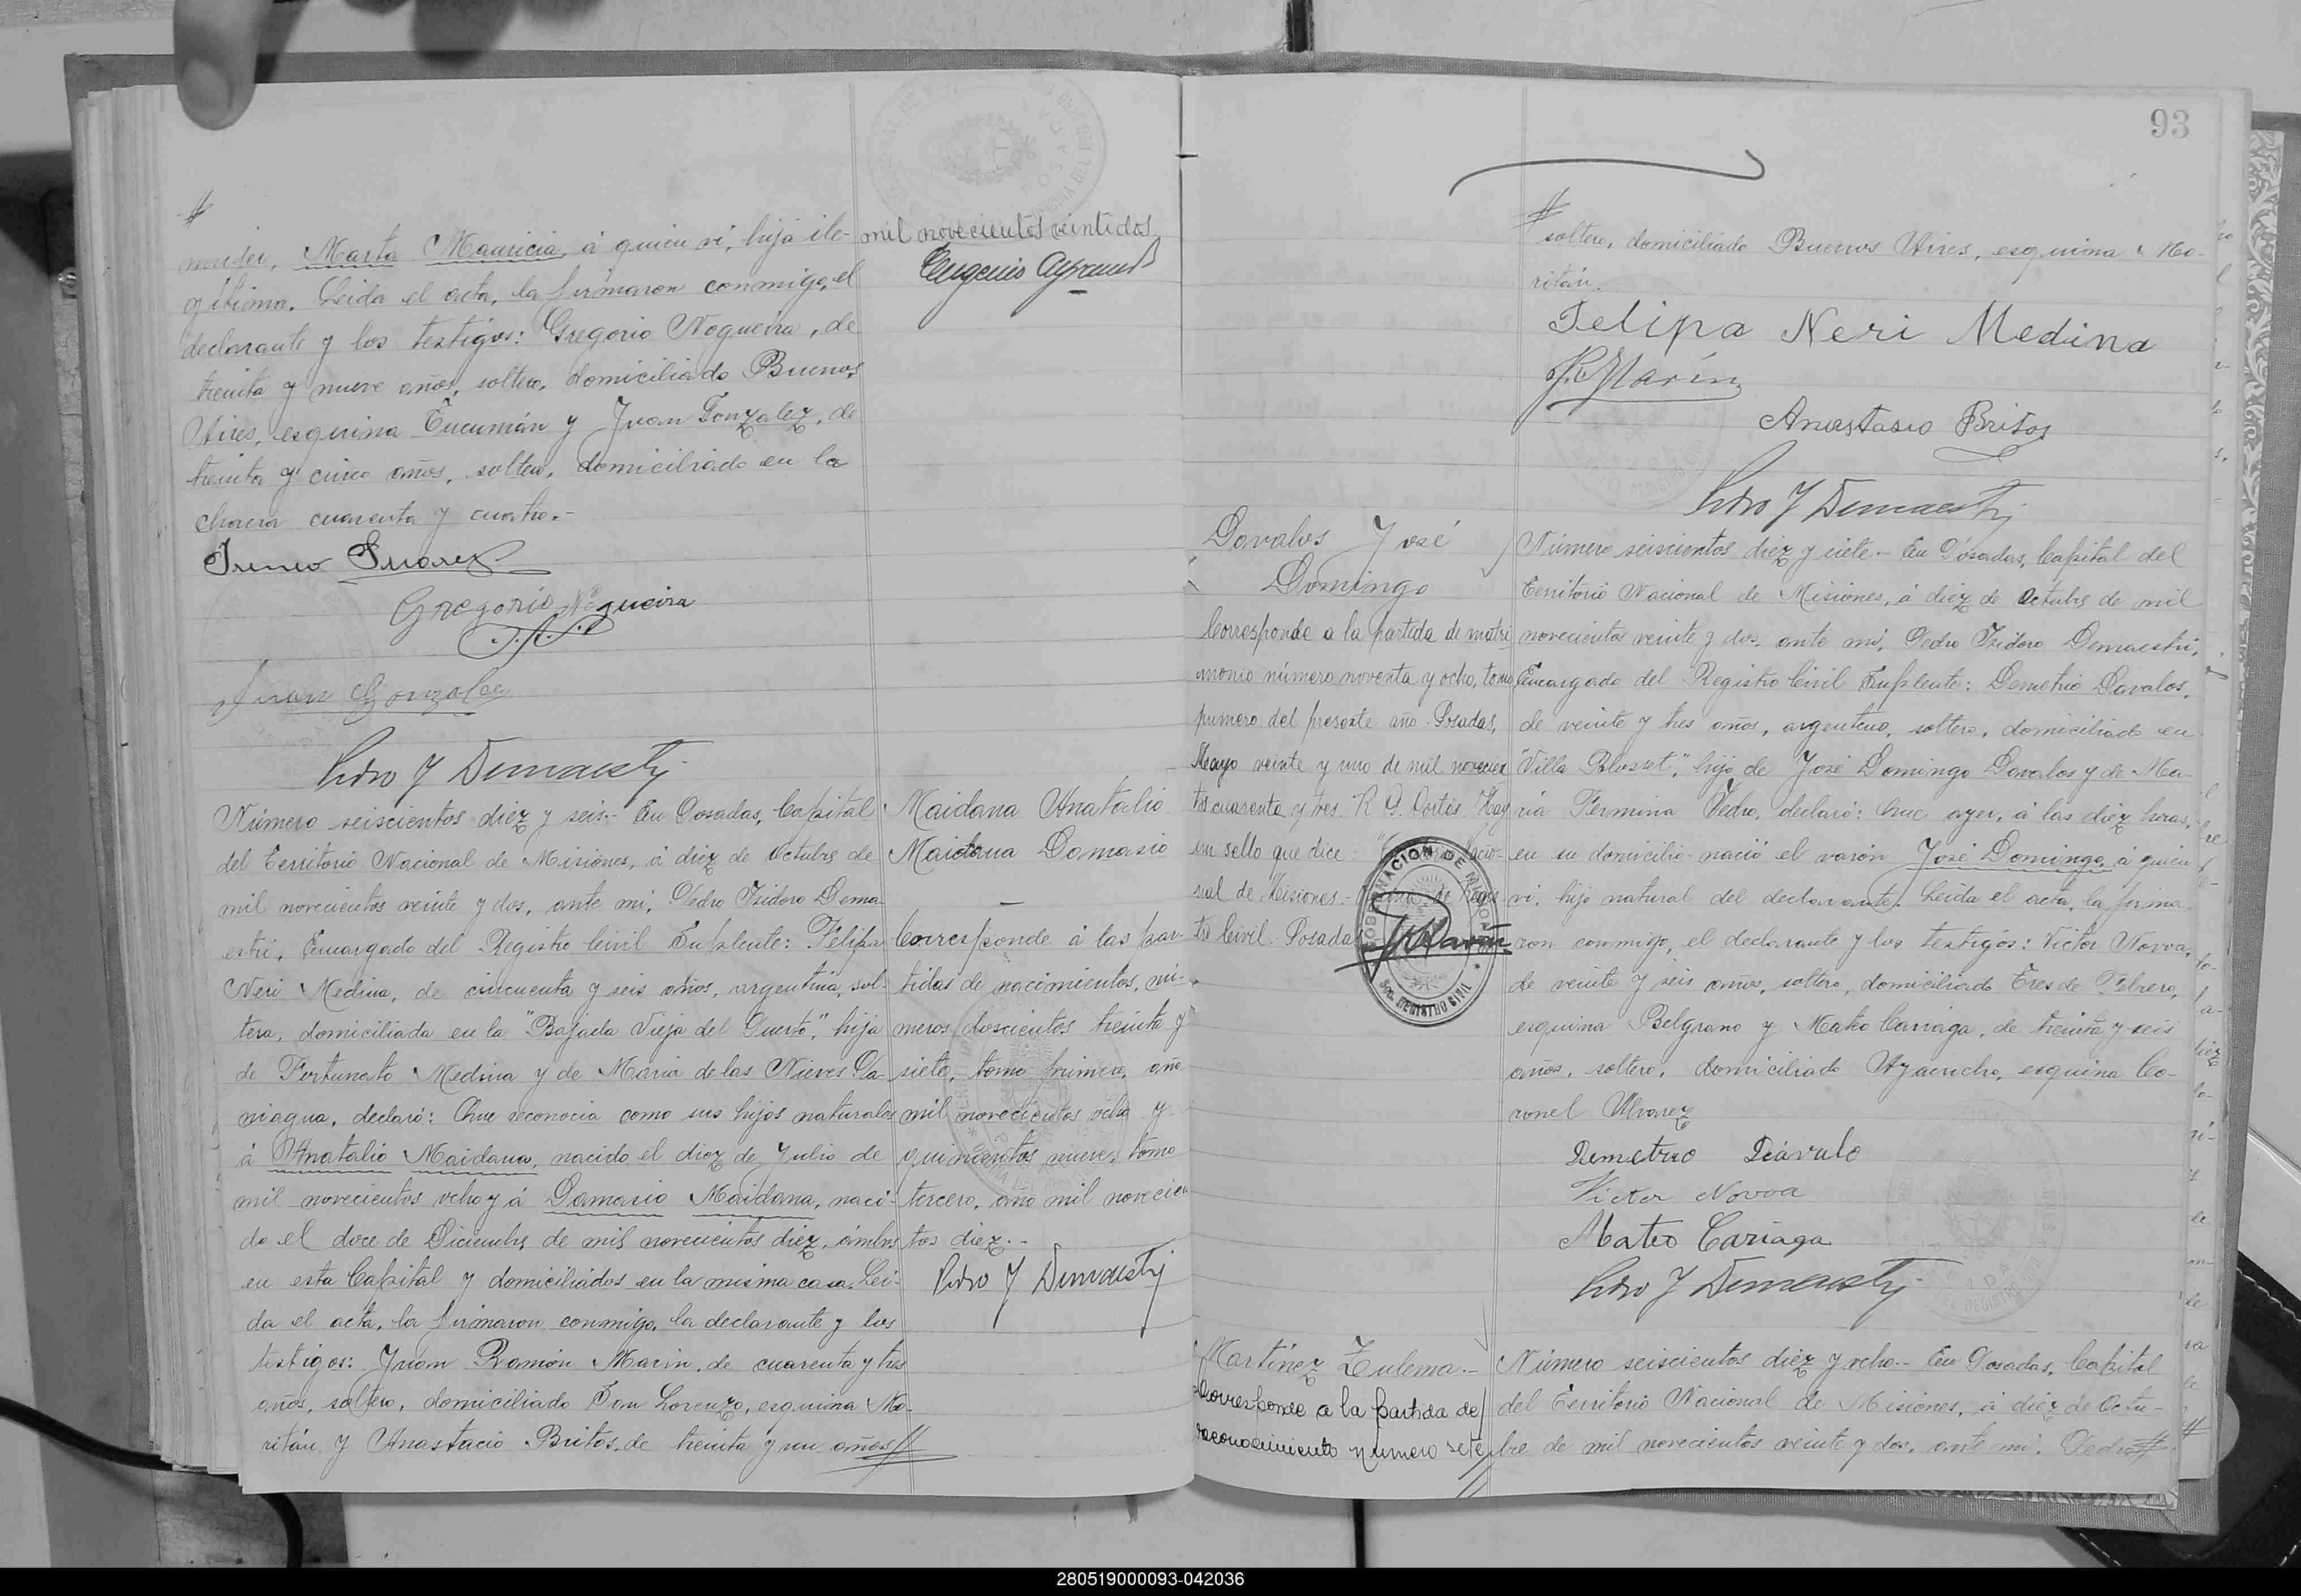 #
mujer, Marta Mauricia, á quien ví, hija ile-
gítima. Leida el acta, la firmaron conmigo, el
declarante y los testigos: Gregorio Nogueira, de
treinta y nueve años, soltero, domiciliado Buenos
Aires, esquina Tucumán y Juan Gonzalez, de
treinta y cinco años, soltero, domiciliado en la
chacra cuarenta y cuatro.-
Gregorio Nogueira
Juan Gonzalez
Pedro J Demaestri
mil novecientos veintidos
Eugenio
Número seiscientos diez y seis.- En Posadas, Capital
del Territorio Nacional de Misiones, á diez de Octubre de
mil novecientos veinte y dos, ante mí, Pedro Isidoro Dema
estri, Encargado del Registro Civil Suplente: Felipa
Neri Medina, de cincuenta y seis años, argentina, sol-
tera, domiciliada en la "Bajada Vieja del Puerto", hija
de Fortunato Medina y de María de las Nieves Pa-
niagua, declaró: Que reconocia como sus hijos naturales
á Anatalio Maidana, nacido el diez de Julio de
mil novecientos ocho y á Damasio Maidana, naci-
do el doce de Diciembre de mil novecientos diez, ámbos
en esta Capital y domiciliados en la misma casa. Lei-
da el acta, la firmaron conmigo, la declarante y los
testigos: Juan Ramón Marin, de cuarenta y tres
años, soltero, domiciliado San Lorenzo, esquina No-
ritán, y Anastacio Britos, de treinta y un años//
Maidana Anatalio
Maidana Damasio
Corresponde á las par-
tidas de nacimientos, nú-
meros doscientos treinta y
siete, tomo primero, año
mil novecientos ocho y
quinientos nueve, tomo
tercero, año mil novecien
tos diez.-
Pedro J Demaestri
93
#
soltero, domiciliado Buenos Aires, esquina No-
ritán.
Felipa Neri Medina
J. R. Marín
Anastasio Britos
Pedro J Demaestri
Davalos José
Domingo
Corresponde a la partida de matri
monio número noventa y ocho, tomo
primero del presente año. Posadas,
Mayo veinte y uno de mil novecien
tos cuarenta y tres. R. O. Cortés. Hay
un sello que dice: "
nal de Misiones.-
tro Civil. Posadas
GOBERNACION DE MISIONES
REGISTRO CIVIL
Número seiscientos diez y siete.- En Posadas, Capital del
Territorio Nacional de Misiones, á diez de Octubre de mil
novecientos veinte y dos, ante mí, Pedro Isidoro Demaestri,
Encargado del Registro Civil Suplente: Demetrio Davalos,
de veinte y tres años, argentino, soltero, domiciliado en
"Villa Blosset", hijo de José Domingo Davalos y de Ma-
ría Fermina Pedro, declaró: Que ayer, á las diez horas,
en su domicilio nació el varón José Domingo, á quien
ví, hijo natural del declarante. Leida el acta, la firma-
ron conmigo, el declarante y los testigos: Victor Novoa,
de veinte y seis años, soltero, domiciliado Tres de Febrero,
esquina Belgrano y Mateo Cariaga, de treinta y seis
años, soltero, domiciliado Ayacucho, esquina Co-
ronel Alvarez
Demetrio Dávalo
Victor Novoa
Mateo Cariaga
Pedro J Demaestri
Martínez Zulema.-
Corresponde a la partida de
reconocimiento número sete
Número seiscientos diez y ocho.- En Posadas, Capital
del Territorio Nacional de Misiones, á diez de Octu-
bre de mil novecientos veinte y dos, ante mí, Pedro#
280519000093-042036